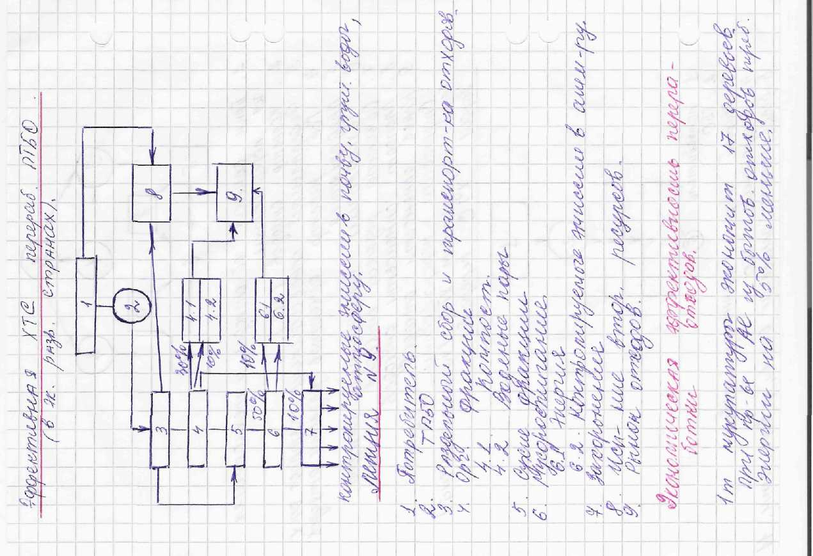 Эффективная ХТС перераб. ПТБО.
(в эк. разв. странах).
1
2
3
4
5
6
7
8
9.
4.1
4.2
6.1
6.2
30%
10%
50%
10%
контролируемые эмиссии в почву, грунт. воды,
атмосферу.
Лекция N9.
1. Потребитель.
2. ТБО
3. Раздельный сбор и транспорт-ка отходов.
4. Орг. фракции
4.1 Компост.
4.2 Водяные пары
5. Сухие фракции
6. Мусоросжигание.
6.1 Энергия
6.2. Контролируемые эмиссии в атм-ру.
7. Захоронение
8. Исп-ние втор. ресурсов.
9. Рынок отходов.
Экономическая эффективность перера-
ботки отходов.
1т макулатуры экономит 17 деревьев
При пр-ве Al из бытов. отходов треб.
энергии на 50% меньше.